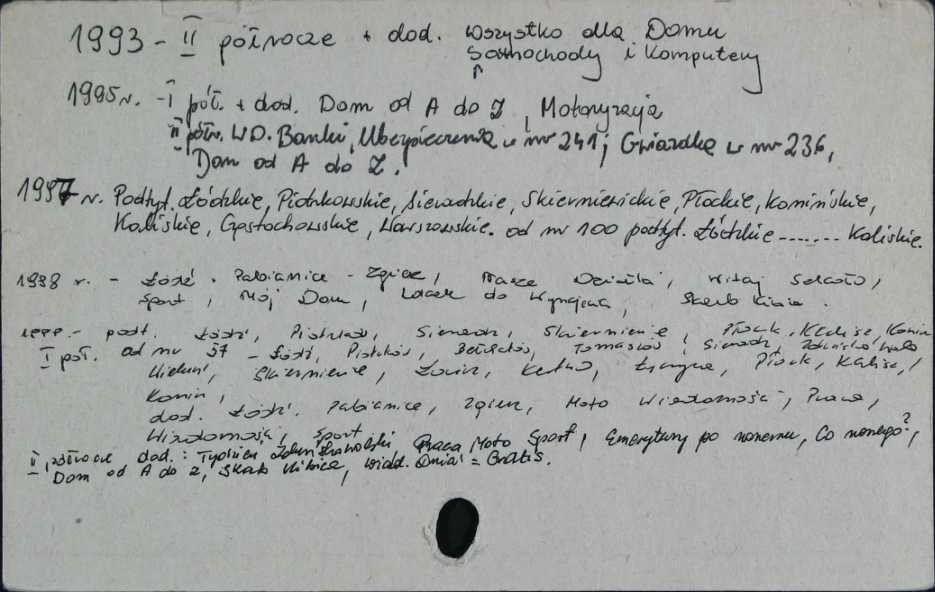 1993 - II półrocze + dod. Wszystko dla Domu
Samochody i Komputery
1995 r. - I pół. + dod. Dom od A do Z, Motoryzacja
II półr. WD. Banki, Ubezpieczenia w nr 241; Gwiazdka w nr 236,
Dom od A do Z.
1997 r. Podtyt. Łódzkie, Piotrkowskie, Sieradzkie, Skierniewickie, Płockie, Konińskie,
Kaliskie, Częstochowskie, Warszawskie. od nr 100 podtyt. Łódzkie ....... Kaliskie.
1998 r. - Łódź. Pabianice - Zgierz, Nasze, Witaj Szkoło,
Sport, Mój Dom, Lokal do Wynajęcia, Skarb Kibica.
1999 - podt. Łódź, Piotrków, Sieradz, Skierniewice, Płock, Kalisz, Konin
I poł. od nr 57 - Łódź, Piotrków, Bełchatów, Tomaszów, Sieradz, Zduńska Wola
Wieluń, Skierniewice, Łowicz, Kutno, Łęczyca, Płock, Kalisz,
Konin,
dod. Łódź. Pabianice, Zgierz, Moto Wiadomości, Praca,
Wiadomości, Sport
II półrocze dod.: Tydzień Praca Moto Sport, Emerytury po nowemu, Co nowego?,
Dom od A do Z, Skarb Kibica, Wiad. Dnia = Gratis.